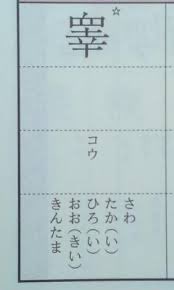 睾☆
コウ
さわ
たか(い)
ひろ(い)
おお(きい)
きんたま